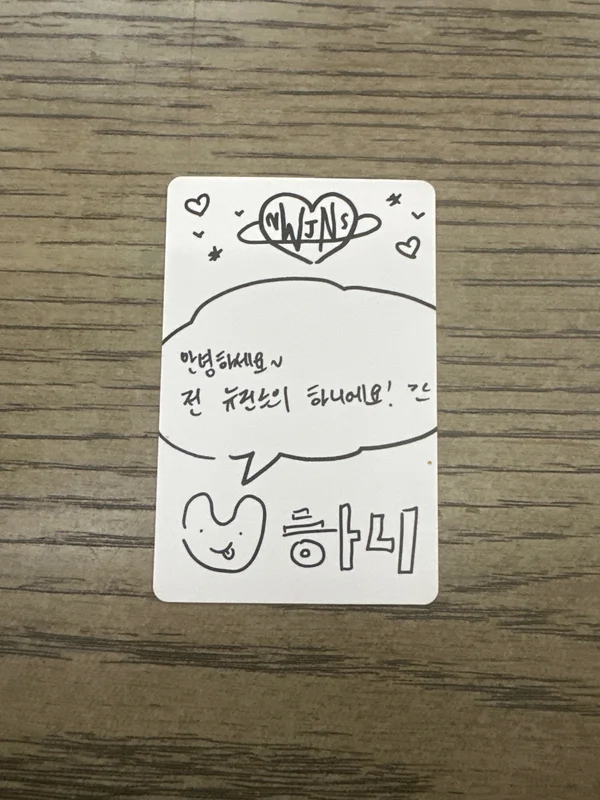 NWJNS
안녕하세요~
전 뉴진스의 하니에요! 간
하니